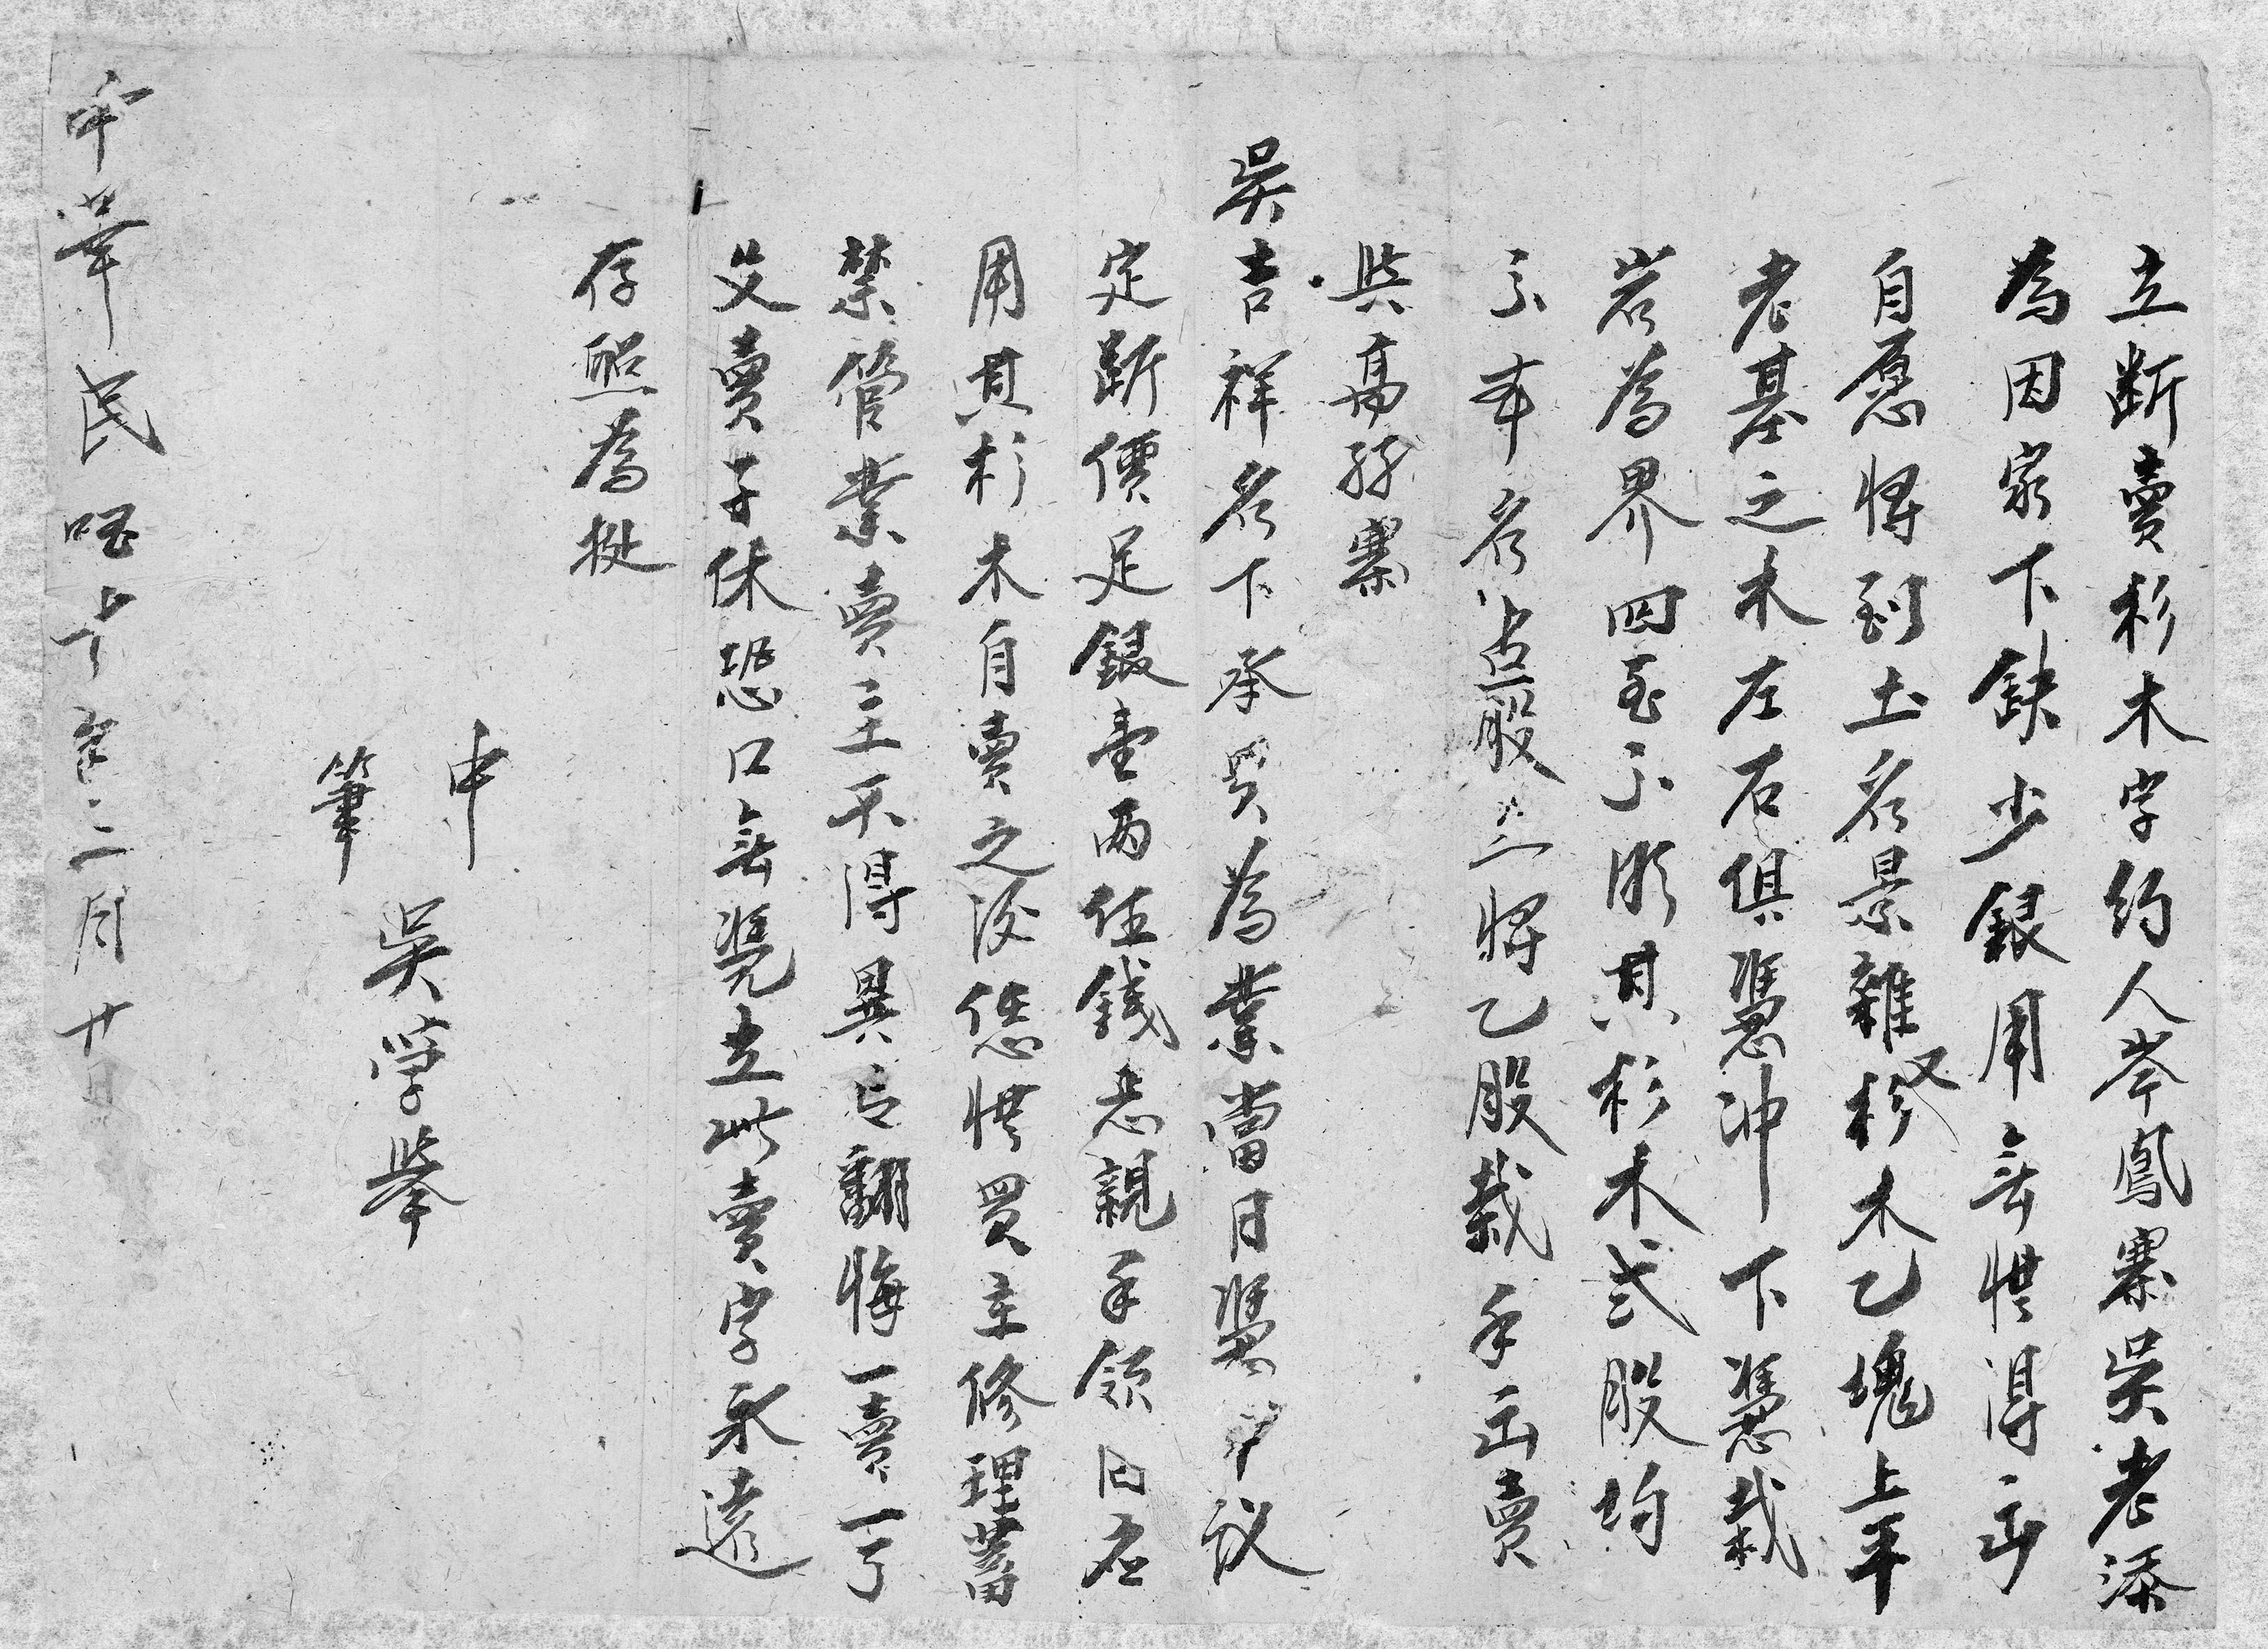 立断賣杉木字約人岑鳳寨吳老添
為因家下缺少銀用無供得出
自愿將到土名景雜杉木乙塊上平
老基之木左右俱憑冲下憑栽
岩為界四至分明其杉木弍股均
分本名占股三將乙股栽手出賣
與高孖寨
吳吉祥名下承買為業當日憑中议
定断價足銀壹两伍錢悉親手領囘应
用其杉木自賣之後恁供買主修理蓄
禁管業賣主不得異言翻悔一賣一了
父賣子休恐口無凴立此賣字永遠
存照為挻
中
吳学举
筆
中華民國 年二月廿日